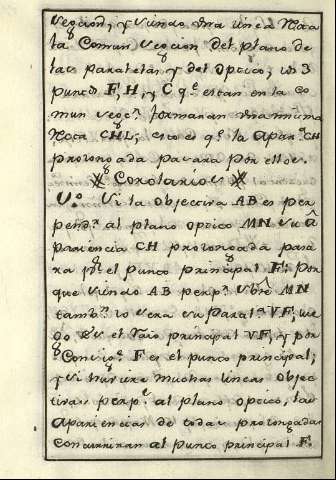 seccion, y siendo una linea Recta
la Comun seccion del plano de
las paralelas y del optico; los 3
puntos F, H, y C q.e estan en la co
mun secc.n formaran una misma
Recta CHL; esto es q.e la apar.a CH
prolongada pasara por ellos.
Corolarios
1.o Si la objectiva AB es per
pend.r al plano optico MN su â
pariencia CH prolongada pasa
ra p.r el punto principal F. Por
que siendo AB perp.r sobre MN
tamb.n lo sera su paral.a VF, sie
do VF el Raio principal VF, y por
Consig.te F es el punto principal;
y si hubiere muchas lineas objec
tivas perp.s al plano optico, las
Apariencias de todas prolongadas
concurriran al punto principal F.